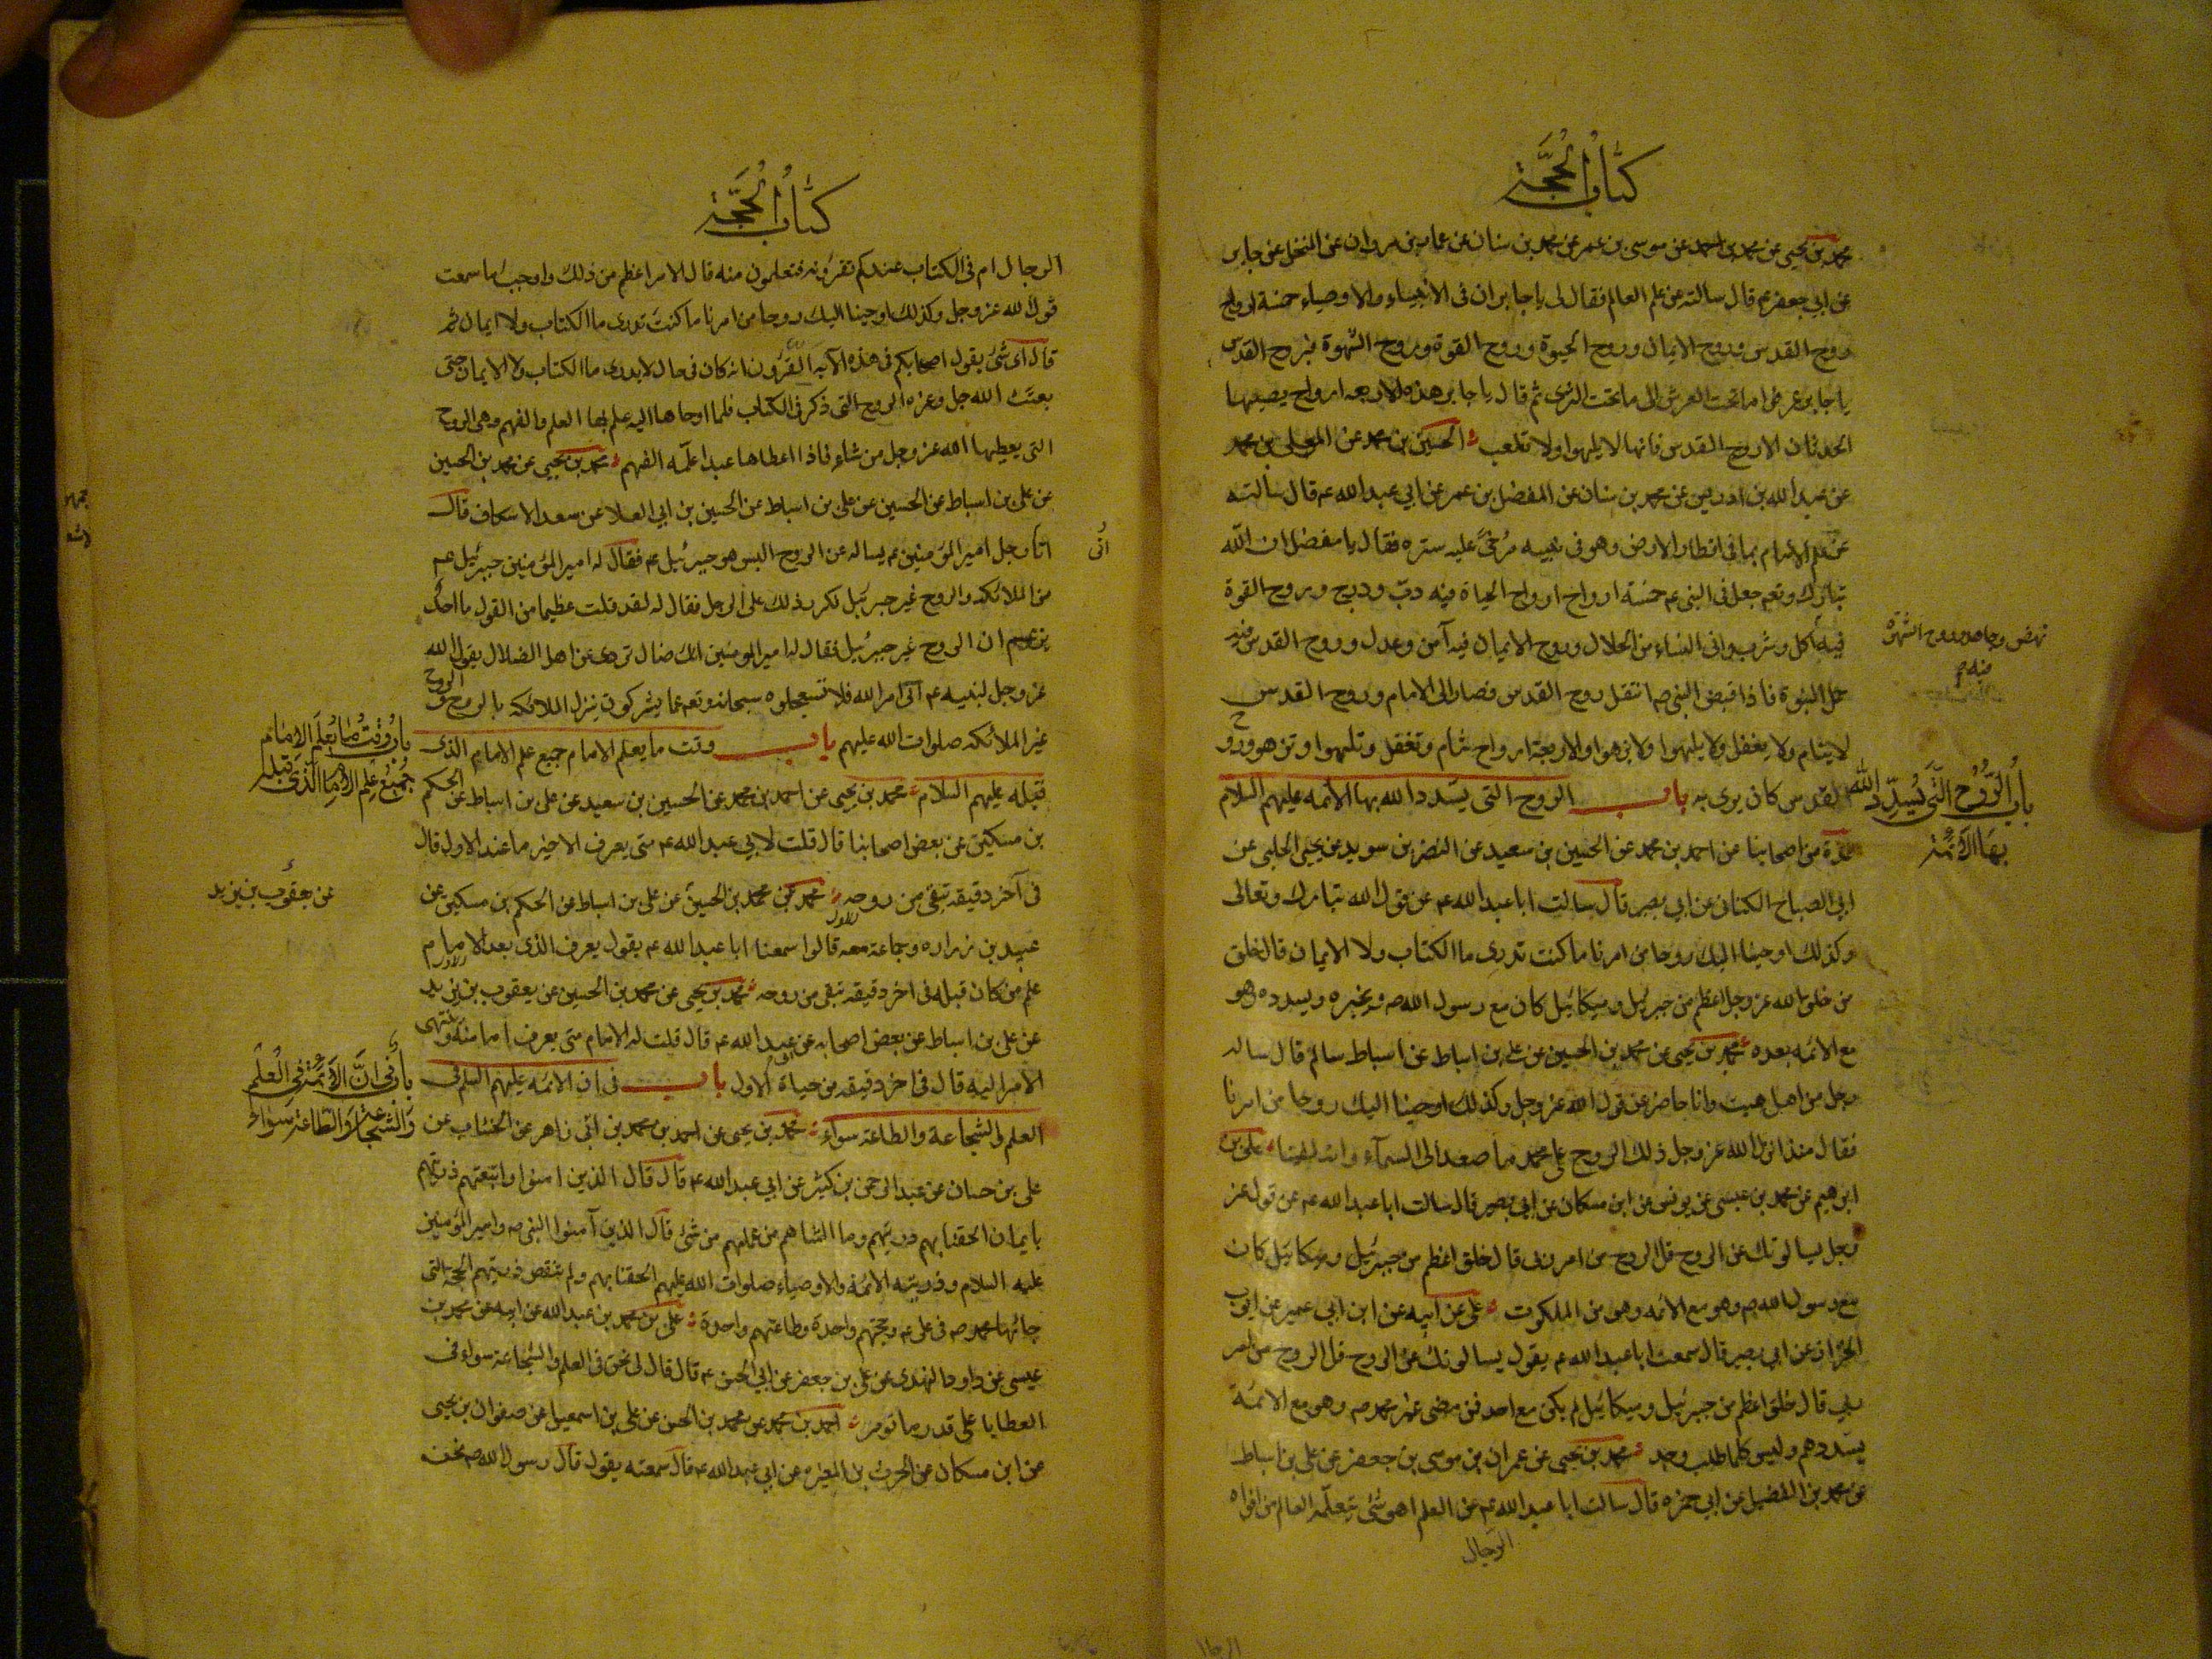 كتاب الحجة
محمد بن يحيى عن محمد بن احمد عن موسى بن عمر عن محمد بن سنان عن عمار بن مروان عن المنخل عن جابر
عن ابي جعفر ع قال سالته عن علم العالم فقال لى يا جابر ان فى الانبياء والاوصياء خمسة ارواح
روح القدس وروح الايمان وروح الحيوة وروح القوة وروح الشهوة فبروح القدس
يا جابر عرفوا ما تحت العرش الى ما تحت الثرى ثم قال يا جابر هذه الاربعه ارواح يصيبها
الحدثان الا روح القدس فانها لا يلهوا ولا تلعب الحسين بن محمد عن المعلى بن محمد
عن عبد الله بن ادريس عن محمد بن سنان عن المفضل بن عمر عن ابي عبد الله ع قال سالته
عن علم الامام بما فى اقطار الارض وهو فى بيته مرخى عليه ستره فقال يا مفضل ان الله
تبارك وتعم جعل فى النبى ع خمسة ارواح ارواح الحياة فيه دب ودرج وروح القوة
فيه ياكل وشرب واتى النساء من الحلال وروح الايمان فيه آمن وعدل وروح القدس فبه
نهض وجاهد وروح الشهوة
فيه
حمل النبوة فاذا قبض النبى ص انتقل روح القدس فصار الى الامام وروح القدس
لا ينام ولا يغفل ولا يلهوا ولا يزهوا والاربعة ارواح تنام وتغفل وتلهوا وتزهو وروح
القدس كان يرى به باب الروح التى يسدد الله بها الائمه عليهم السلام
باب الروح التى يسدد الله
بها الائمة
عدة من اصحابنا عن احمد بن محمد عن الحسين بن سعيد عن النضر بن سويد عن يحيى الحلبى عن
ابى الصباح الكنانى عن ابي بصير قال سالت ابا عبد الله ع عن قول الله تبارك وتعالى
وكذلك اوحينا اليك روحا من امرنا ما كنت تدرى ما الكتاب ولا الايمان قال خلق
من خلق الله عز وجل اعظم من جبرئيل وميكائيل كان مع رسول الله ص يخبره ويسدده وهو
مع الائمه بعده محمد بن يحيى عن محمد بن الحسين عن على بن اسباط عن اسباط سالم قال ساله
رجل من اهل هيت وانا حاضر عن قول الله عز وجل وكذلك اوحينا اليك روحا من امرنا
فقال منذ انزل الله عز وجل ذلك الروح على محمد ما صعد الى السمآء وانه لفينا على بن
ابرهيم عن محمد بن عيسى عن يونس عن ابن مسكان عن ابي بصير قال سالت ابا عبد الله ع عن قوله عز
وجل يسالونك عن الروح قل الروح من امر ربى قال خلق اعظم من جبرئيل وميكائيل كان
مع رسول الله ص وهو مع الائمه وهو من الملكوت على عن ابيه عن ابن ابي عمير عن ايوب
الخزاز عن ابي بصير قال سمعت ابا عبد الله ع يقول يسالونك عن الروح قل الروح من امر
ربي قال خلق اعظم من جبرئيل وميكائيل لم يكن مع احد فمن مضى غير محمد ص وهو مع الائمة
يسددهم وليس كلما طلب وجد محمد بن يحيى عن عمران بن موسى بن جعفر عن على بن اسباط
عن محمد بن الفضيل عن ابي حمزه قال سالت ابا عبد الله ع عن العلم اهو شى يتعلمه العالم من افواه
الرجال
كتاب الحجة
الرجال ام فى الكتاب عندكم تقرؤنه فتعلمون منه قال الامر اعظم من ذلك واوجب اما سمعت
قول الله عز وجل وكذلك اوحينا اليك روحا من امرنا ما كنت تدرى ما الكتاب ولا الايمان ثم
قال اى شئ يقول اصحابكم فى هذه الآيه القرون انه كان فى حال لا يدرى ما الكتاب ولا الايمان حتى
بعث الله جل وعزه الروح التى ذكر فى الكتاب فلما اوحاها اليه علم بها العلم والفهم وهى الروح
التى يعطيها الله عز وجل من شاء فاذا اعطاها عبدا علمه الفهم محمد بن يحيى عن محمد بن الحسين
عن على بن اسباط عن الحسين عن على بن اسباط عن الحسين بن ابي العلا عن سعد الاسكاف قال
اتا رجل امير المؤمنين ع يساله عن الروح اليس هو جبرئيل ع فقال له امير المؤمنين جبرئيل ع
اتى
من الملائكه والروح غير جبرئيل فكرر ذلك على الرجل فقال له لقد قلت عظيما من القول ما احد
يزعم ان الروح غير جبرئيل فقال له امير المومنين انك ضال تروى عن اهل الضلال يقول الله
عز وجل لنبيه ع اتى امر الله فلا تستعجلوه سبحانه وتعم عما يشركون ينزل الملائكه بالروح و الروح
غير الملائكه صلوات الله عليهم باب وقت ما يعلم الامام جميع علم الامام الذى
باب وقت ما يعلم الامام
جميع علم الامام الذى قبله
قبله عليهم السلام محمد بن يحيى عن احمد بن محمد عن الحسين بن سعيد عن على بن اسباط عن الحكم
بن مسكين عن بعض اصحابنا قال قلت لابي عبد الله ع متى يعرف الاخير ما عند الاول قال
فى آخر دقيقه تبقى من روحه محمد عن محمد بن الحسين عن على بن اسباط عن الحكم بن مسكين عن
عن يعقوب بن يزيد
عبيد بن زراره وجماعة معه قالوا سمعنا ابا عبد الله ع يقول يعرف الذى بعد الامام
علم من كان قبله فى اخر دقيقه تبقى من روحه محمد بن يحيى عن محمد بن الحسين عن يعقوب بن يزيد
عن على بن اسباط عن بعض اصحابه عن عبد الله ع قال قلت له الامام متى يعرف امامته وينتهى
الامر اليه قال فى اخر دقيقه من حياة الاول باب فى ان الائمه عليهم السلم فى
باب فى ان الائمة فى العلم
والشجاعة والطاعة سواء
العلم والشجاعة والطاعة سواء محمد بن يحيى عن احمد بن محمد بن ابى زاهر عن الخشاب عن
على بن حسان عن عبد الرحمن بن كثير عن ابي عبد الله ع قال قال الذين امنوا واتبعتهم ذريتهم
بايمان الحقنا بهم ذريتهم وما التناهم من عملهم من شئ قال الذين آمنوا النبى ص وامير المؤمنين
عليه السلام وذريته الائمة والاوصياء صلوات الله عليهم الحقنا بهم ولم ننقص ذريتهم الحجة التى
جائها محمد ص فى على ع وحجتهم واحدة وطاعتهم واحدة على بن محمد بن عبد الله عن ابيه عن محمد بن
عيسى عن داود النهدى عن على بن جعفر عن ابي الحسن ع قال قال لى نحن فى العلم والشجاعة سواء فى
العطايا على قدر ما نومر احمد بن محمد عن محمد بن الحسن عن على بن اسمعيل عن صفوان بن يحيى
عن ابن مسكان عن الحرث بن المغيره عن ابي عبد الله ع قال سمعته يقول قال رسول الله ص نحن